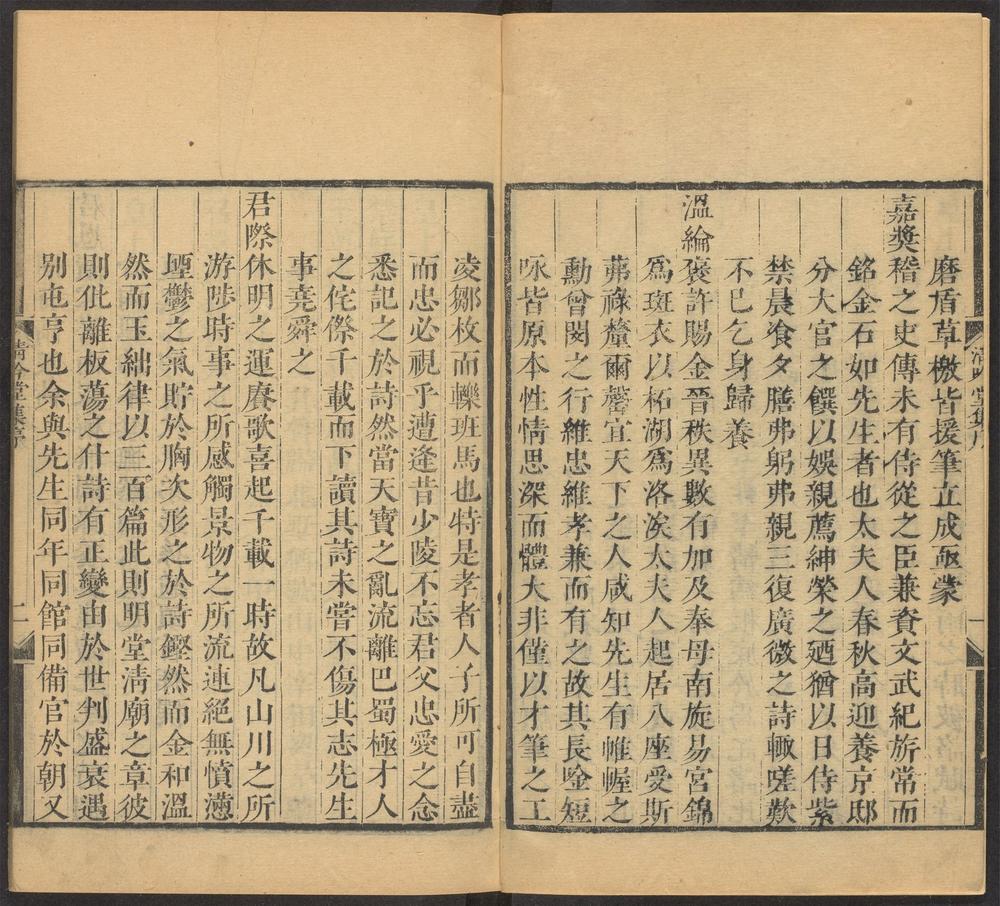 清吟堂集序
一
磨盾草檄皆援筆立成亟蒙
嘉奬稽之史傳未有侍從之臣兼資文武紀旂常而
銘金石如先生者也太夫人春秋高迎養京邸
分大官之饌以娛親薦紳榮之廼猶以日侍紫
禁晨飡夕膳弗躬弗親三復廣微之詩輙嗟歎
不已乞身歸養
溫綸褒許賜金晉秩異數有加及奉母南旋易宮錦
爲斑衣以柘湖爲洛涘太夫人起居八座愛斯
茀祿釐爾罄宜天下之人咸知先生有帷幄之
勳曾閔之行維忠維孝兼而有之故其長唫短
咏皆原本性情思深而體大非僅以才筆之工
凌鄒枚而轢班馬也特是孝者人子所可自盡
而忠必視乎遭逢昔少陵不忘君父忠愛之念
悉記之於詩然當天寶之亂流離巴蜀極才人
之侘傺千載而下讀其詩未嘗不傷其志先生
事堯舜之
君際休明之運賡歌喜起千載一時故凡山川之所
游陟時事之所感觸景物之所流連絕無憤懣
堙鬱之氣貯於胸次形之於詩鏗然而金和溫
然而玉絀律以三百篇此則明堂淸廟之章彼
則仳離板蕩之什詩有正變由於世判盛衰遇
别屯亨也余與先生同年同館同備官於朝又
清吟堂集序
二